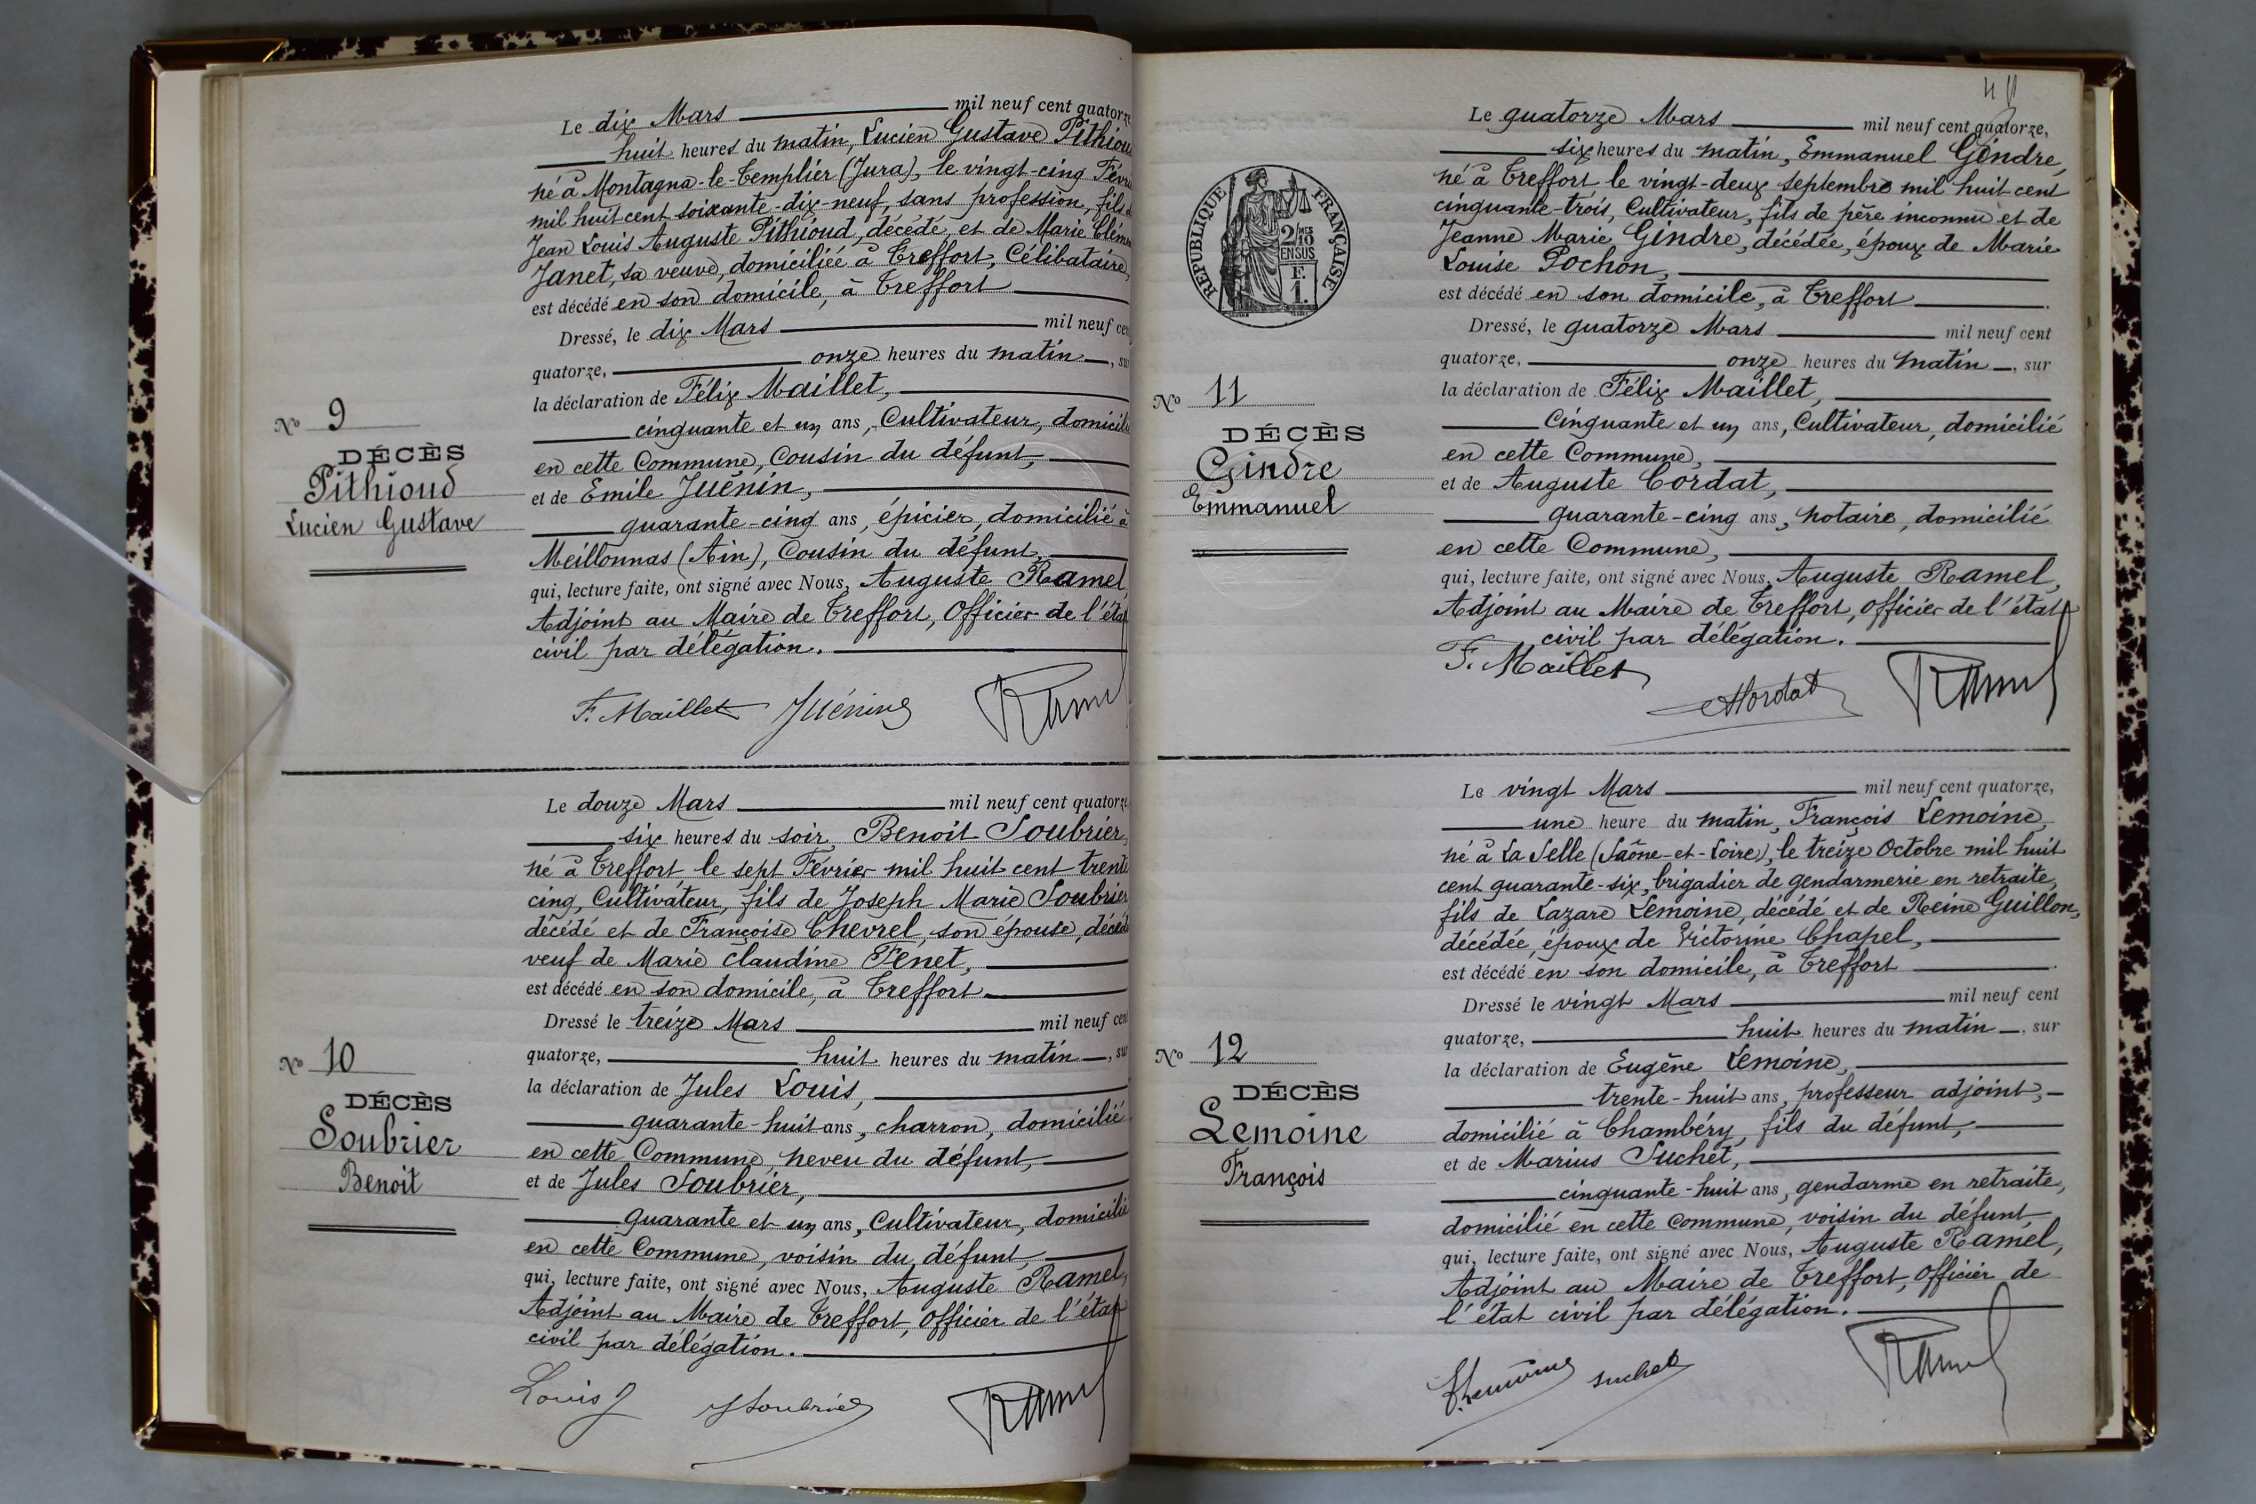 Le dix Mars mil neuf cent quatorze
huit heures du matin, Lucien Gustave Pithioud
né à Montagna-le-Templier (Jura), le vingt-cinq
mil huit cent soixante-dix-neuf, sans profession, fils
Jean Louis Auguste Pithioud, décédé, et de Marie
Janet, sa veuve, domiciliée à Treffort, Célibataire,
est décédé en son domicile, à Treffort
Dressé, le dix Mars mil neuf cent
quatorze, onze heures du matin, sur
la déclaration de Félix Maillet,
cinquante et un ans, Cultivateur, domicilié
en cette Commune, Cousin du défunt,
et de Emile Juénin,
quarante-cinq ans, épicier, domicilié à
Meillonnas (Ain), Cousin du défunt,
qui, lecture faite, ont signé avec Nous, Auguste Ramel,
Adjoint au Maire de Treffort, Officier de l'état
civil par délégation.
F. Maillet Juénin Ramel
No 9
DÉCÈS
Pithioud
Lucien Gustave
Le douze Mars mil neuf cent quatorze
six heures du soir, Benoit Soubrier,
né à Treffort le sept Février mil huit cent trente
cinq, Cultivateur, fils de Joseph Marie Soubrier
décédé et de Françoise Chevrel, son épouse, décédé
veuf de Marie Claudine Fenet,
est décédé en son domicile, à Treffort
Dressé le treize Mars mil neuf cent
quatorze, huit heures du matin, sur
la déclaration de Jules Louis,
quarante-huit ans, charron, domicilié
en cette Commune, neveu du défunt,
et de Jules Soubrier,
quarante et un ans, Cultivateur, domicilié
en cette Commune, voisin du défunt,
qui, lecture faite, ont signé avec Nous, Auguste Ramel,
Adjoint au Maire de Treffort, Officier de l'état
civil par délégation.
Louis J JSoubrier Ramel
No 10
DÉCÈS
Soubrier
Benoit
RÉPUBLIQUE FRANÇAISE
2/10 MES
EN SUS
F.
1.
Le quatorze Mars mil neuf cent quatorze,
six heures du matin, Emmanuel Gindre,
né à Treffort le vingt-deux septembre mil huit cent
cinquante-trois, Cultivateur, fils de père inconnu et de
Jeanne Marie Gindre, décédée, époux de Marie
Louise Pochon,
est décédé en son domicile, à Treffort
Dressé, le quatorze Mars mil neuf cent
quatorze, onze heures du matin, sur
la déclaration de Félix Maillet,
Cinquante et un ans, Cultivateur, domicilié
en cette Commune,
et de Auguste Cordat,
quarante-cinq ans, notaire, domicilié
en cette Commune,
qui, lecture faite, ont signé avec Nous, Auguste Ramel,
Adjoint au Maire de Treffort, officier de l'état
civil par délégation.
F. Maillet ACordat Ramel
No 11
DÉCÈS
Gindre
Emmanuel
Le vingt Mars mil neuf cent quatorze,
une heure du matin, François Lemoine,
né à La Selle (Saône-et-Loire), le treize Octobre mil huit
cent quarante-six, brigadier de gendarmerie en retraite,
fils de Lazare Lemoine, décédé et de Reine Guillon,
décédée, époux de Victorine Chapel,
est décédé en son domicile, à Treffort
Dressé le vingt Mars mil neuf cent
quatorze, huit heures du matin, sur
la déclaration de Eugène Lemoine,
trente-huit ans, professeur adjoint,
domicilié à Chambéry, fils du défunt,
et de Marius Suchet,
cinquante-huit ans, gendarme en retraite,
domicilié en cette commune, voisin du défunt,
qui, lecture faite, ont signé avec Nous, Auguste Ramel,
Adjoint au Maire de Treffort, officier de
l'état civil par délégation.
E. Lemoine Suchet Ramel
No 12
DÉCÈS
Lemoine
François